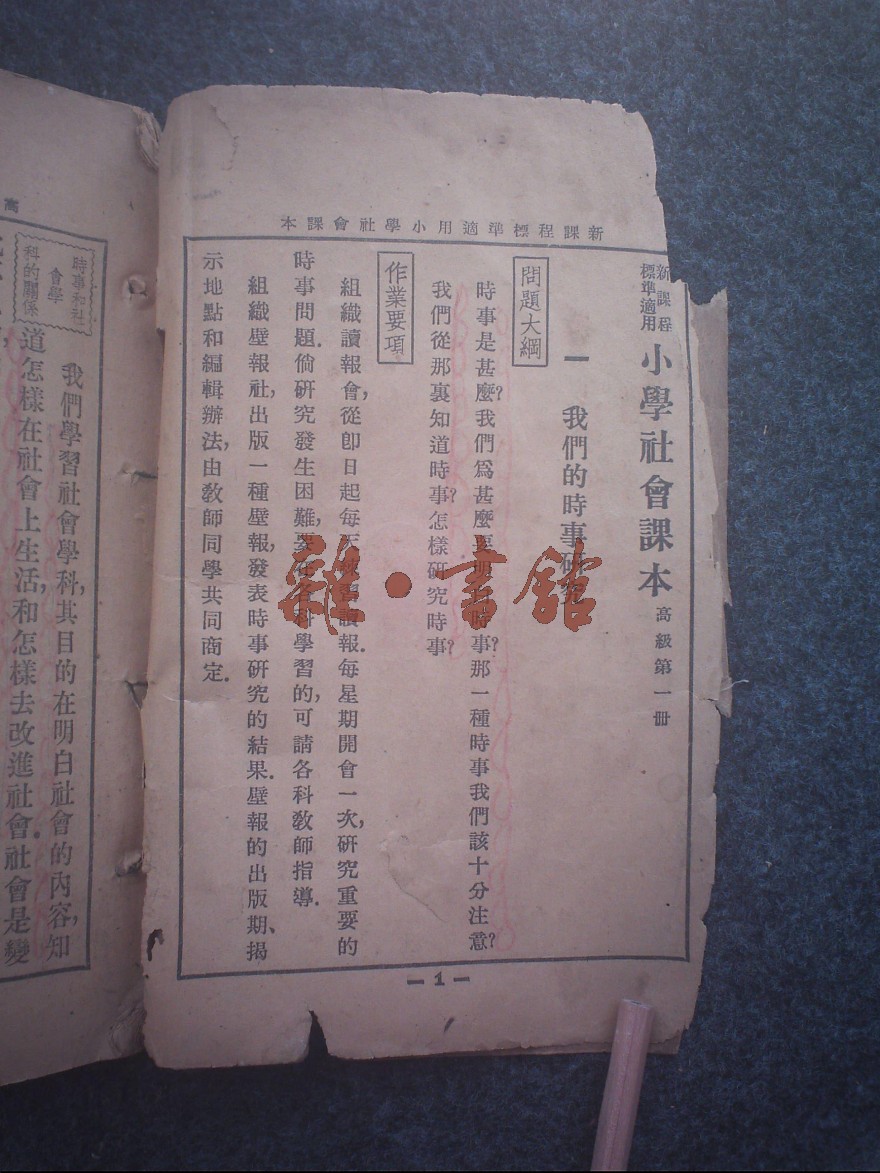 新課程標準適用小學社會課本
新課程
標準適用
小學社會課本 高級第一冊
一 我們的時事研究
問題大綱
時事是甚麼?我們爲甚麼要明白時事?那一種時事我們該十分注意?
我們從那裏知道時事?怎樣研究時事?
作業要項
組織讀報會,從即日起每天練習讀報.每星期開會一次,研究重要的
時事問題.倘研究發生困難,要在各科學習的,可請各科敎師指導.
組織壁報社,出版一種壁報,發表時事研究的結果.壁報的出版期、揭
示地點和編輯辦法,由敎師同學共同商定.
— 1 —
雜·書館
高
時事和社
會學
科的關係
我們學習社會學科,其目的在明白社會的內容,知
道怎樣在社會上生活,和怎樣去改進社會.社會是變